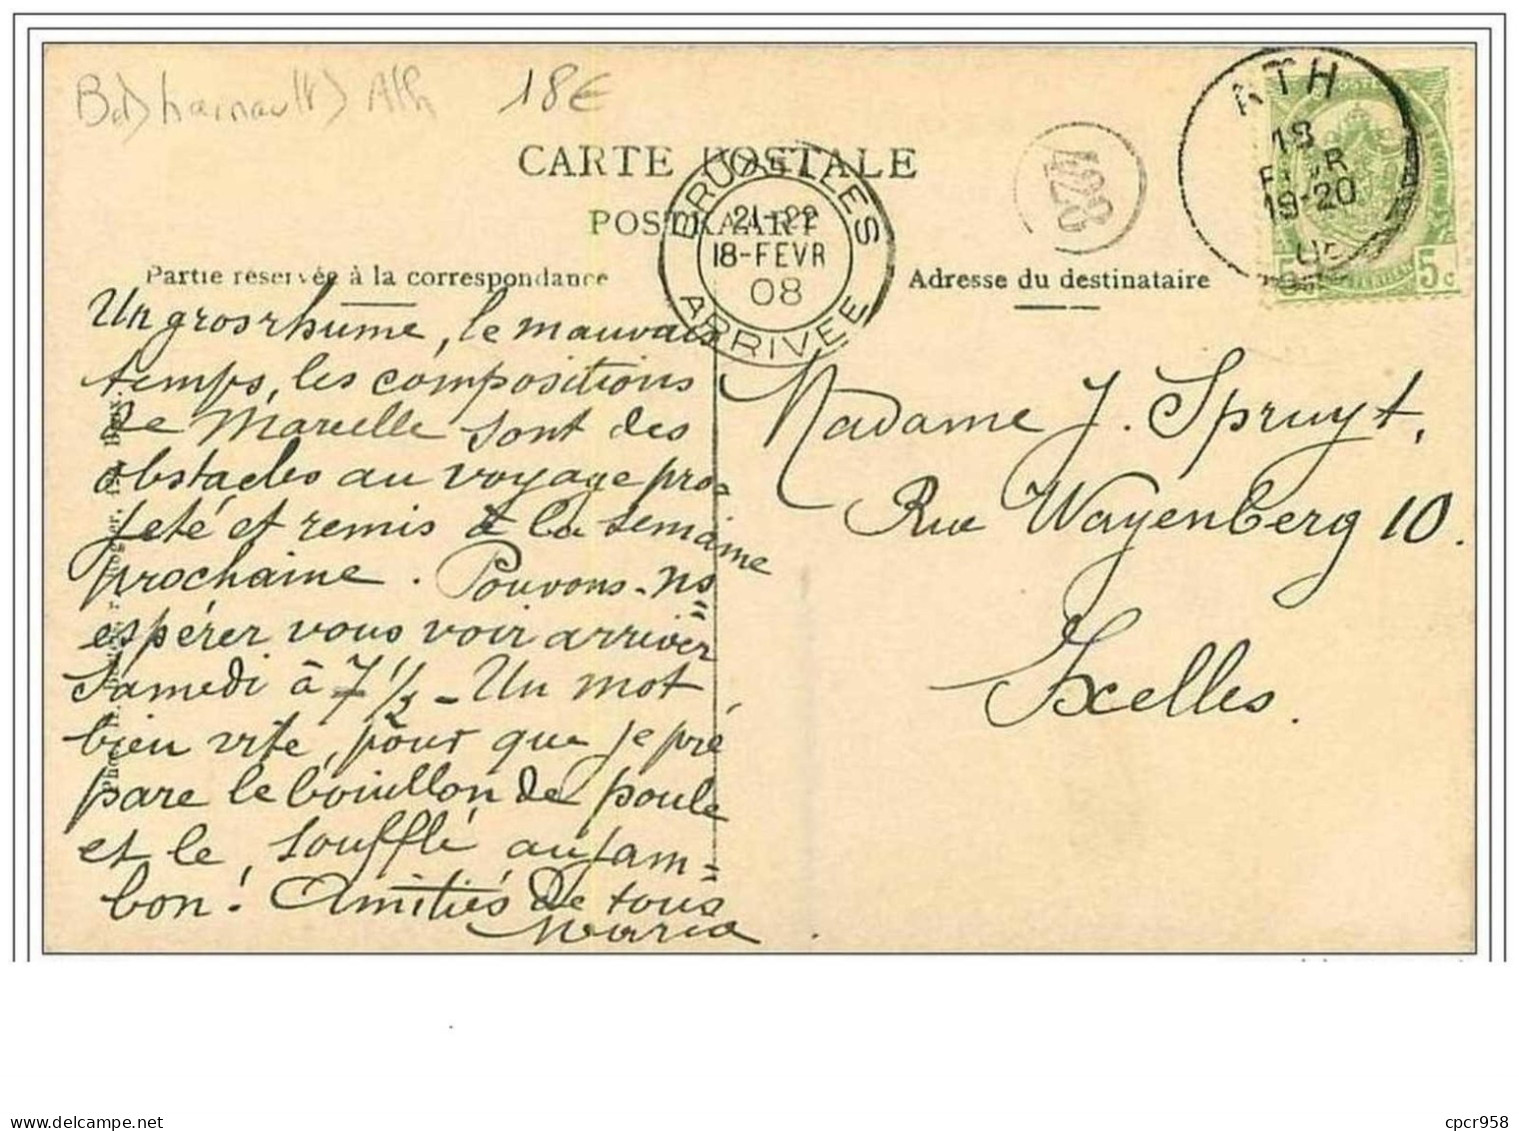 18€
ATH
18
19-20
5c
428
CARTE POSTALE
POSTKAART
BRUXELLES
21-22
18-FEVR
08
ARRIVEE
Partie réservée à la correspondance
Adresse du destinataire
Un gros rhume, le mauvais
temps, les compositions
de Marcelle sont des
obstacles au voyage pro=
jeté et remis à la semaine
prochaine. Pouvons-ns
espérer vous voir arriver
Samedi à 7 1/2 - Un mot
bien vite, pour que je pré
pare le bouillon de poule
et le soufflé au jam=
bon! Amitiés de tous
Maria
Madame J. Spruyt,
Rue Wayenberg 10.
Ixelles.
cpcr958